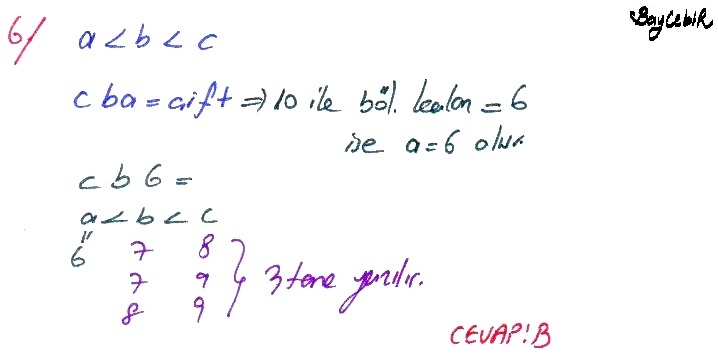 BayCebiR
6/ a < b < c
c b a = çift ⇒ 10 ile böl. kalan = 6
ise a = 6 olur.
c b 6 =
a < b < c
" 
6 7 8
7 9
8 9
} 3 tane yazılır.
CEVAP: B